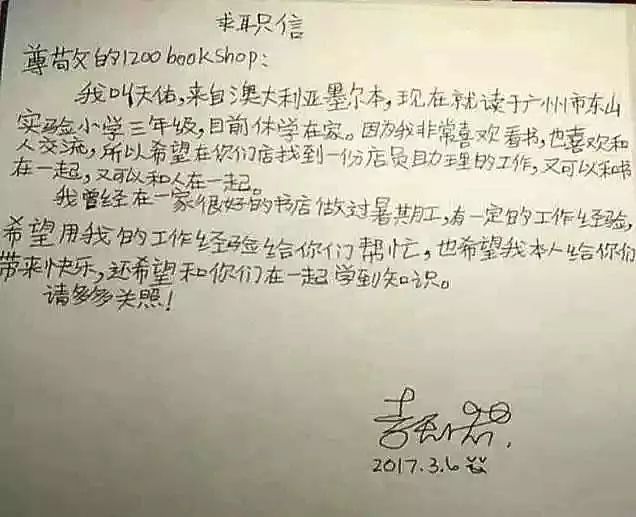 求职信
尊敬的1200bookshop:
我叫天佑,来自澳大利亚墨尔本,现在就读于广州市东山
实验小学三年级,目前休学在家。因为我非常喜欢看书,也喜欢和
人交流,所以希望在你们店找到一份店员助理的工作,又可以和书
在一起,又可以和人在一起。
我曾经在一家很好的书店做过暑期工,有一定的工作经验,
希望用我的工作经验给你们帮忙,也希望我本人给你们
带来快乐,还希望和你们在一起学到知识。
请多多关照!
2017.3.6